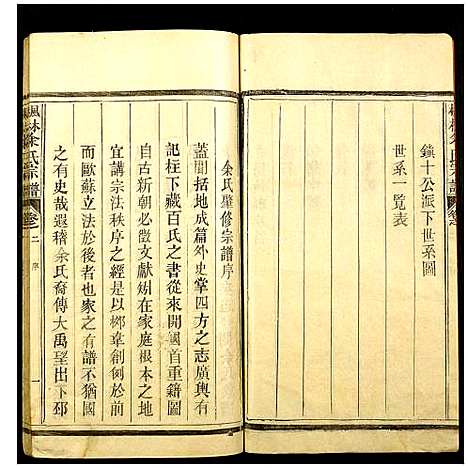 鎮十公派下世系圖
世系一覽表
余氏肇修宗譜序
蓋聞括地成篇外史掌四方之志廣輿有
記柱下藏百氏之書從來開國首重籍圖
自古新朝必徵文獻矧在家庭根本之地
宜講宗法秩序之經是以鄭韋創例於前
而歐蘇立法於後者也家之有譜不猶國
之有史哉遐稽余氏裔傳大禹望出下邳
楓林余氏宗譜
卷之二
序
一